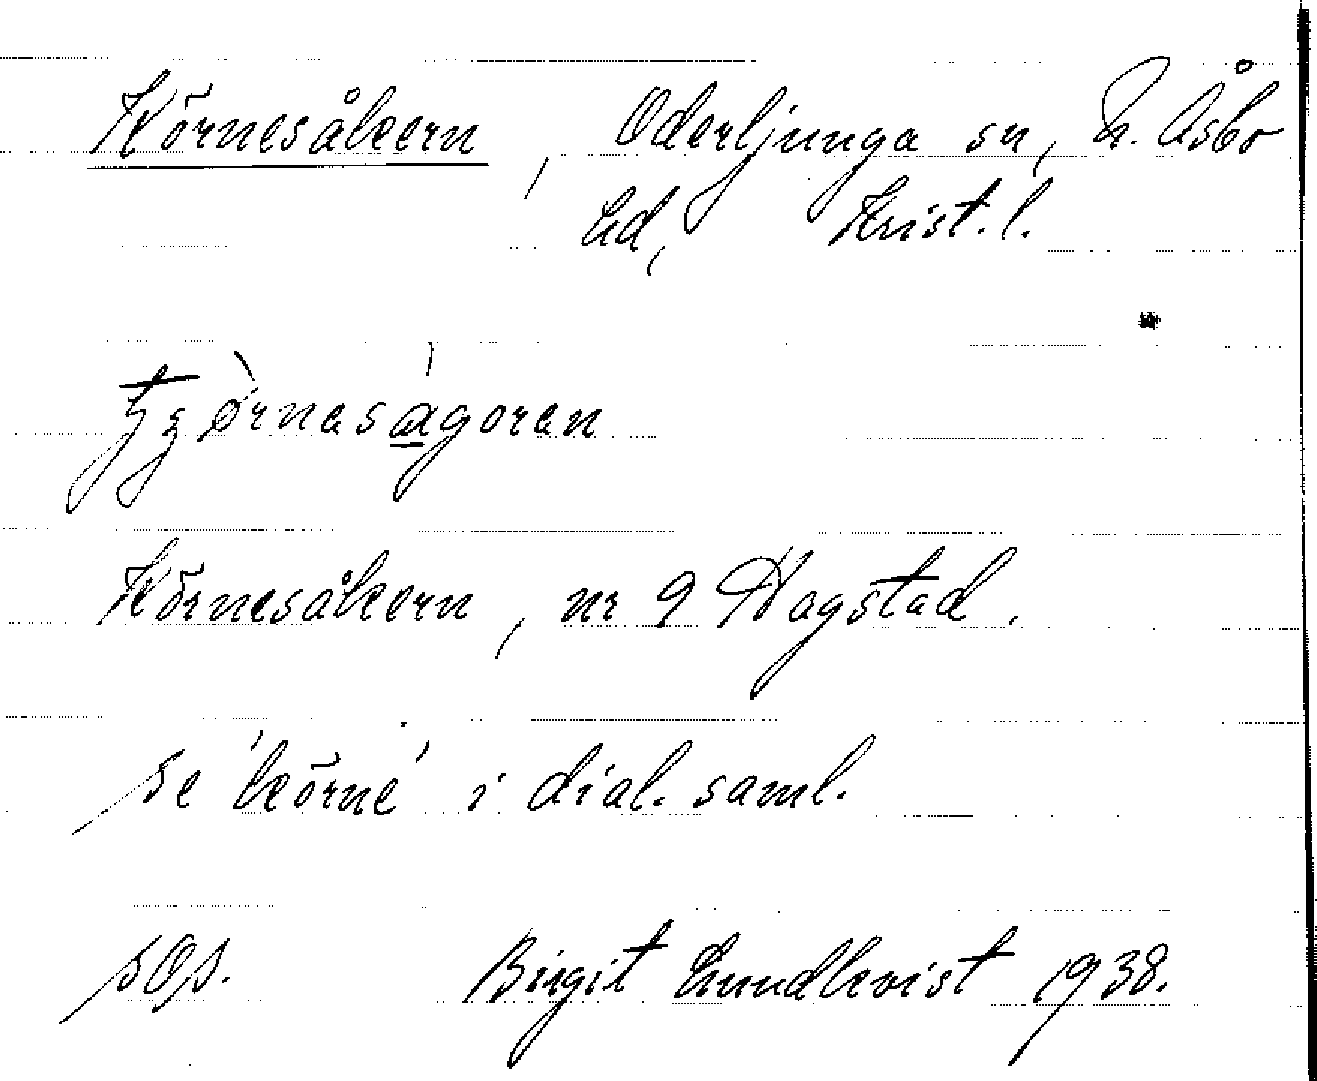 Körnesåkern, Oderljunga sn, N. Åsbo
hd, Krist. l.
Körnesåkern, nr 9 Hagstad.
se 'körne' i dial. saml.
Birgit Lundkvist 1938.